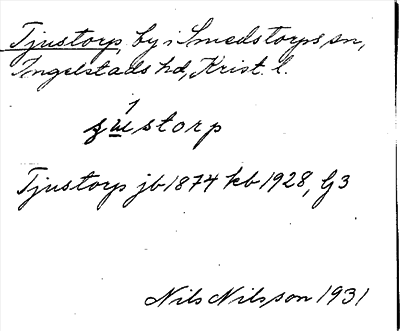 Tjustorp, by i Smedstorps sn,
Ingelstads hd, Krist. l.
1
storp
Tjustorp jb 1874 kb 1928, G3
Nils Nilsson 1931